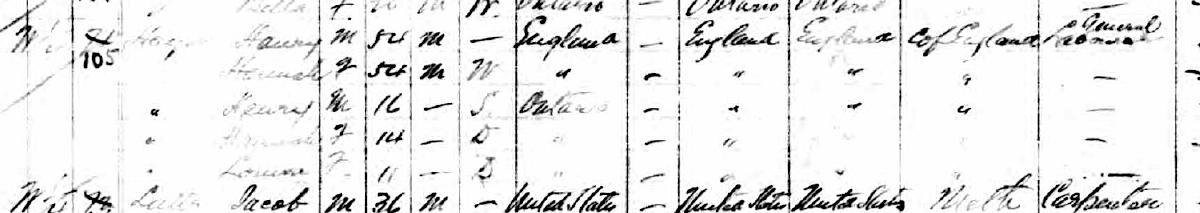 Bella F. M W. Ontario Ontario Ontario
105 Henry M 54 M — England — England England C of England General Labourer
Hannah F 54 M W " — " " " —
" Henry M 16 — S Ontario — " " " —
" Hannah F 14 — D " — " —
" Louisa F 11 — D — " —
Jacob M 36 M — United States — United States United States Meth Carpenter